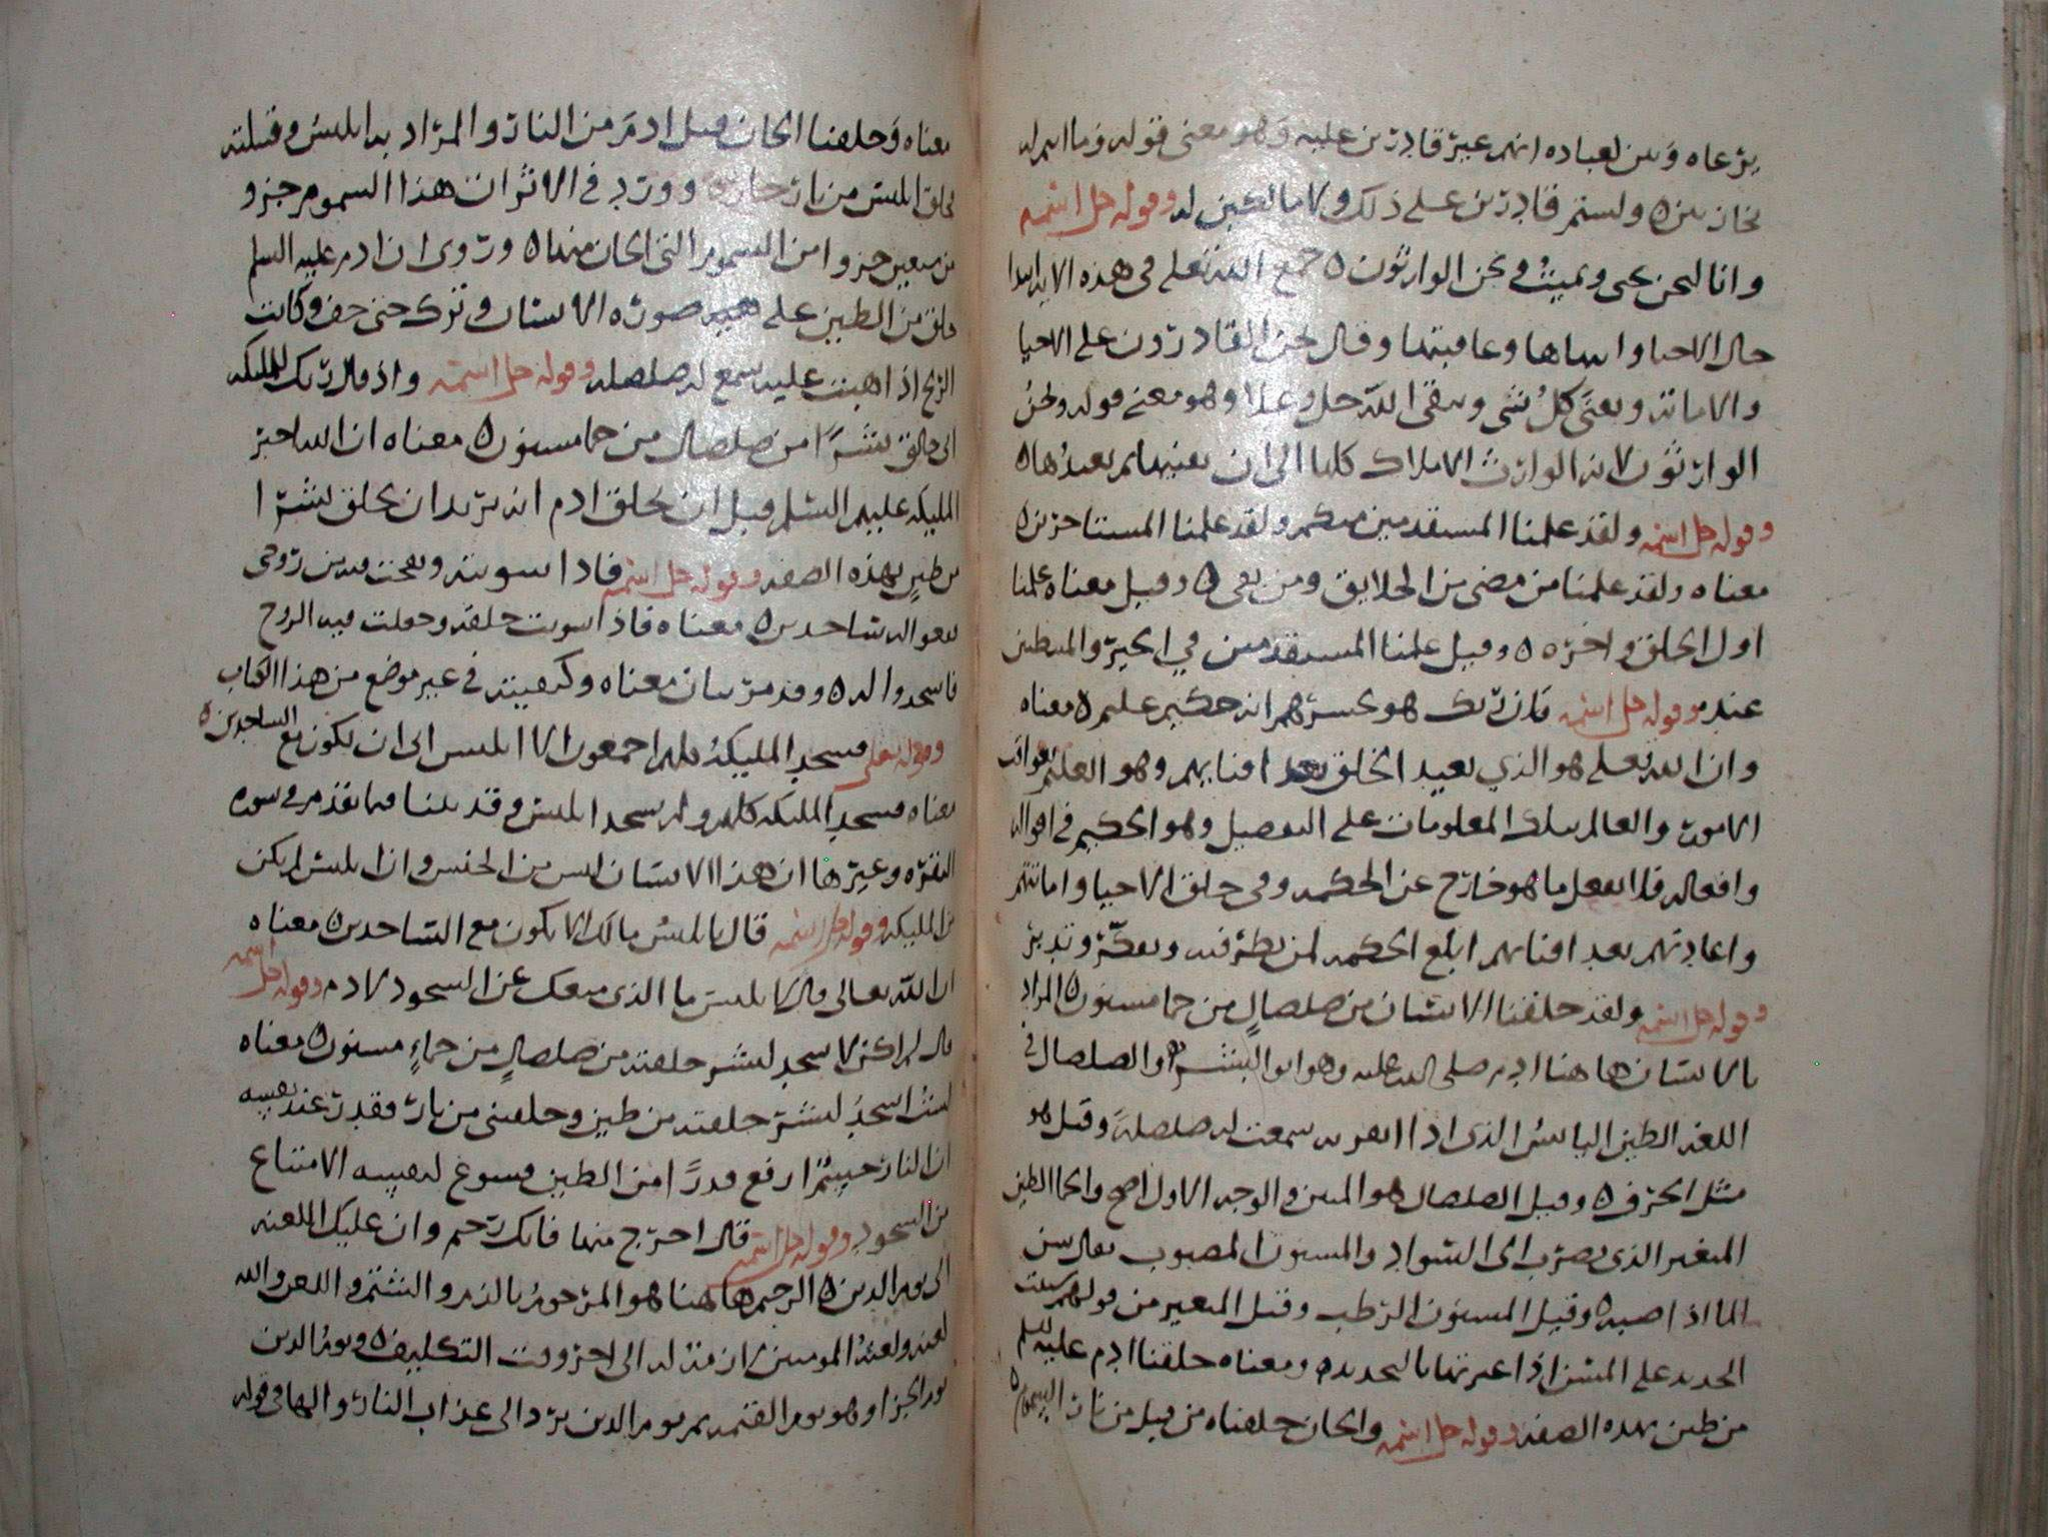 يرعاه وبين لعباده انهم غير قادرين عليه وهو معنى قوله وما انتم له
بخازنين ولستم قادرين على ذلك ولا مالكين له وقوله جل اسمه
وانا لنحن نحي ونميت ونحن الوارثون جمع الله تعلى في هذه الاية ابتدا
حال الاحيا وانتهاها وعاقبتها وقال نحن القادرون على الاحيا
والاماتة ويفنى كل شي ويبقى الله جل وعلا وهو معنى قوله ونحن
الوارثون لانه الوارث الاملاك كلها الى ان يفنيها ثم يعيدها
وقوله جل اسمه ولقد علمنا المستقدمين منكم ولقد علمنا المستاخرين
معناه ولقد علمنا من مضى من الخلايق ومن بقى وقيل معناه علمنا
اول الخلق واخره وقيل علمنا المستقدمين في الخير والمبطين
عنه وقوله جل اسمه فان ربك هو يحشرهم انه حكيم عليم معناه
وان الله تعلى هو الذي يعيد الخلق بعد افنايهم وهو العليم بعواقب
الامور والعالم بتلك المعلومات على التفصيل وهو الحكيم في اقواله
وافعاله فلا يفعل ما هو خارج عن الحكمة وفي خلق الاحيا واماتتهم
واعادتهم بعد افنايهم ابلغ الحكمة لمن نظر فيه وتفكر وتدبر
وقوله جل اسمه ولقد خلقنا الانسان من صلصال من حما مسنون المراد
بالانسان هاهنا ادم صلى الله عليه وهو ابو البشر والصلصال في
اللغة الطين اليابس الذي اذا سمعت له صلصلة وقيل هو
مثل الخزف وقيل الصلصال هو المنتن والوجه الاول اصح والحما الطين
المتغير الذي يضرب الى السواد والمسنون المصبوب يقال سن
الما اذا صبه وقيل المسنون الرطب وقيل المتغير من قولهم سننت
الحديد على المسن اذا غيرتها بالتحديد ومعناه خلقنا ادم عليه السلم
من طين بهذه الصفة وقوله جل اسمه والجان خلقناه من قبل من نار السموم
معناه وخلقنا الجان قبل ادم من النار والمراد به ابليس وقبيلته
خلق ابليس من نار حارة وورد في الاثر ان هذا السموم جزو
من سبعين جزوا من السموم التي الجان منها وروي ان ادم عليه السلم
خلق من الطين على صورة الانسان وترك حتى جف وكانت
الريح اذا هبت عليه سمع له صلصلة وقوله جل اسمه واذ قال ربك للمليكة
اني خالق بشرا من صلصال من حما مسنون معناه ان الله اخبر
المليكة عليهم السلم قبل ان يخلق ادم انه يريد ان يخلق بشرا
من طين بهذه الصفة وقوله جل اسمه فاذا سويته ونفخت فيه من روحي
فقعوا له ساجدين معناه فاذا سويت خلقه وجعلت فيه الروح
فاسجدوا له وقد مر بيان معناه وكيفيته في غير موضع من هذا الكتاب
وقوله تعلى فسجد المليكة كلهم اجمعون الا ابليس ابى ان يكون مع الساجدين
معناه فسجد المليكة كلهم ولم يسجد ابليس وقد بينا فيما تقدم في سورة
البقرة وغيرها ان هذا الاستثنا ليس من الجنس وان ابليس لم يكن
من المليكة وقوله جل اسمه قال يابليس مالك الا تكون مع الساجدين معناه
ان الله تعالى قال لابليس ما الذي منعك عن السجود لادم وقوله جل اسمه
قال لم اكن لاسجد لبشر خلقته من صلصال من حماء مسنون معناه
لست اسجد لبشر خلقته من طين وخلقتني من نار فقدر عند نفسه
ان النار ارفع قدرا من الطين فسوغ لنفسه الامتناع
من السجود وقوله جل اسمه قال اخرج منها فانك رجيم وان عليك اللعنة
الى يوم الدين الرجيم هاهنا هو المرجوم بالذم والشتم واللعن والله
لعنه ولعنه المومنين لازمة له الى اخر وقت التكليف ويوم الدين
يوم الجزا وهو يوم القيمة ثم يوم الدين يرد الى عذاب النار والها في قوله